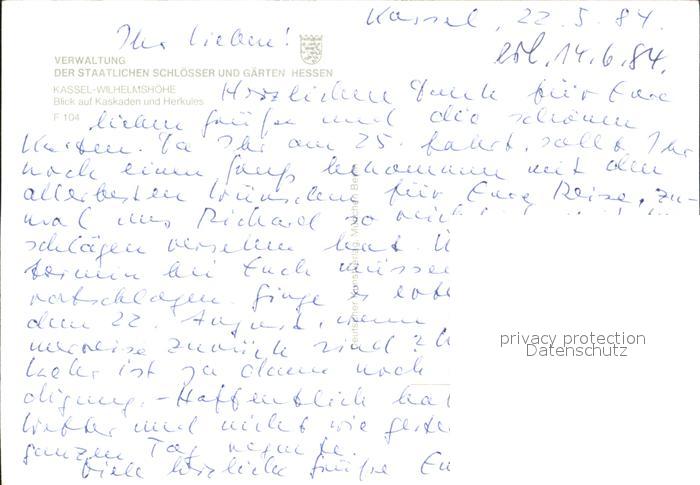 Kassel, 22.5.84.
Ihr Lieben!
erl. 14.6.84.
VERWALTUNG
DER STAATLICHEN SCHLÖSSER UND GÄRTEN HESSEN
KASSEL-WILHELMSHÖHE
Blick auf Kaskaden und Herkules
F 104
Herzlichen Dank für Eure
lieben Grüße und die schönen
Karten. Da Ihr am 25. fahrt, sollt Ihr
noch einen Gruß bekommen mit den
allerbesten Wünschen für Eure Reise, zu-
mal uns Richard so
schlägen versehen hat.
termin bei Euch müssen
ratschlagen. Ginge es
dem 22. August, wenn
zurück sind?
ist ja dann noch
digung. - Hoffentlich
und nicht wie
ganzen Tag regnete.
Viele herzliche Grüße
Deutscher Kunstverlag München
privacy protection
Datenschutz